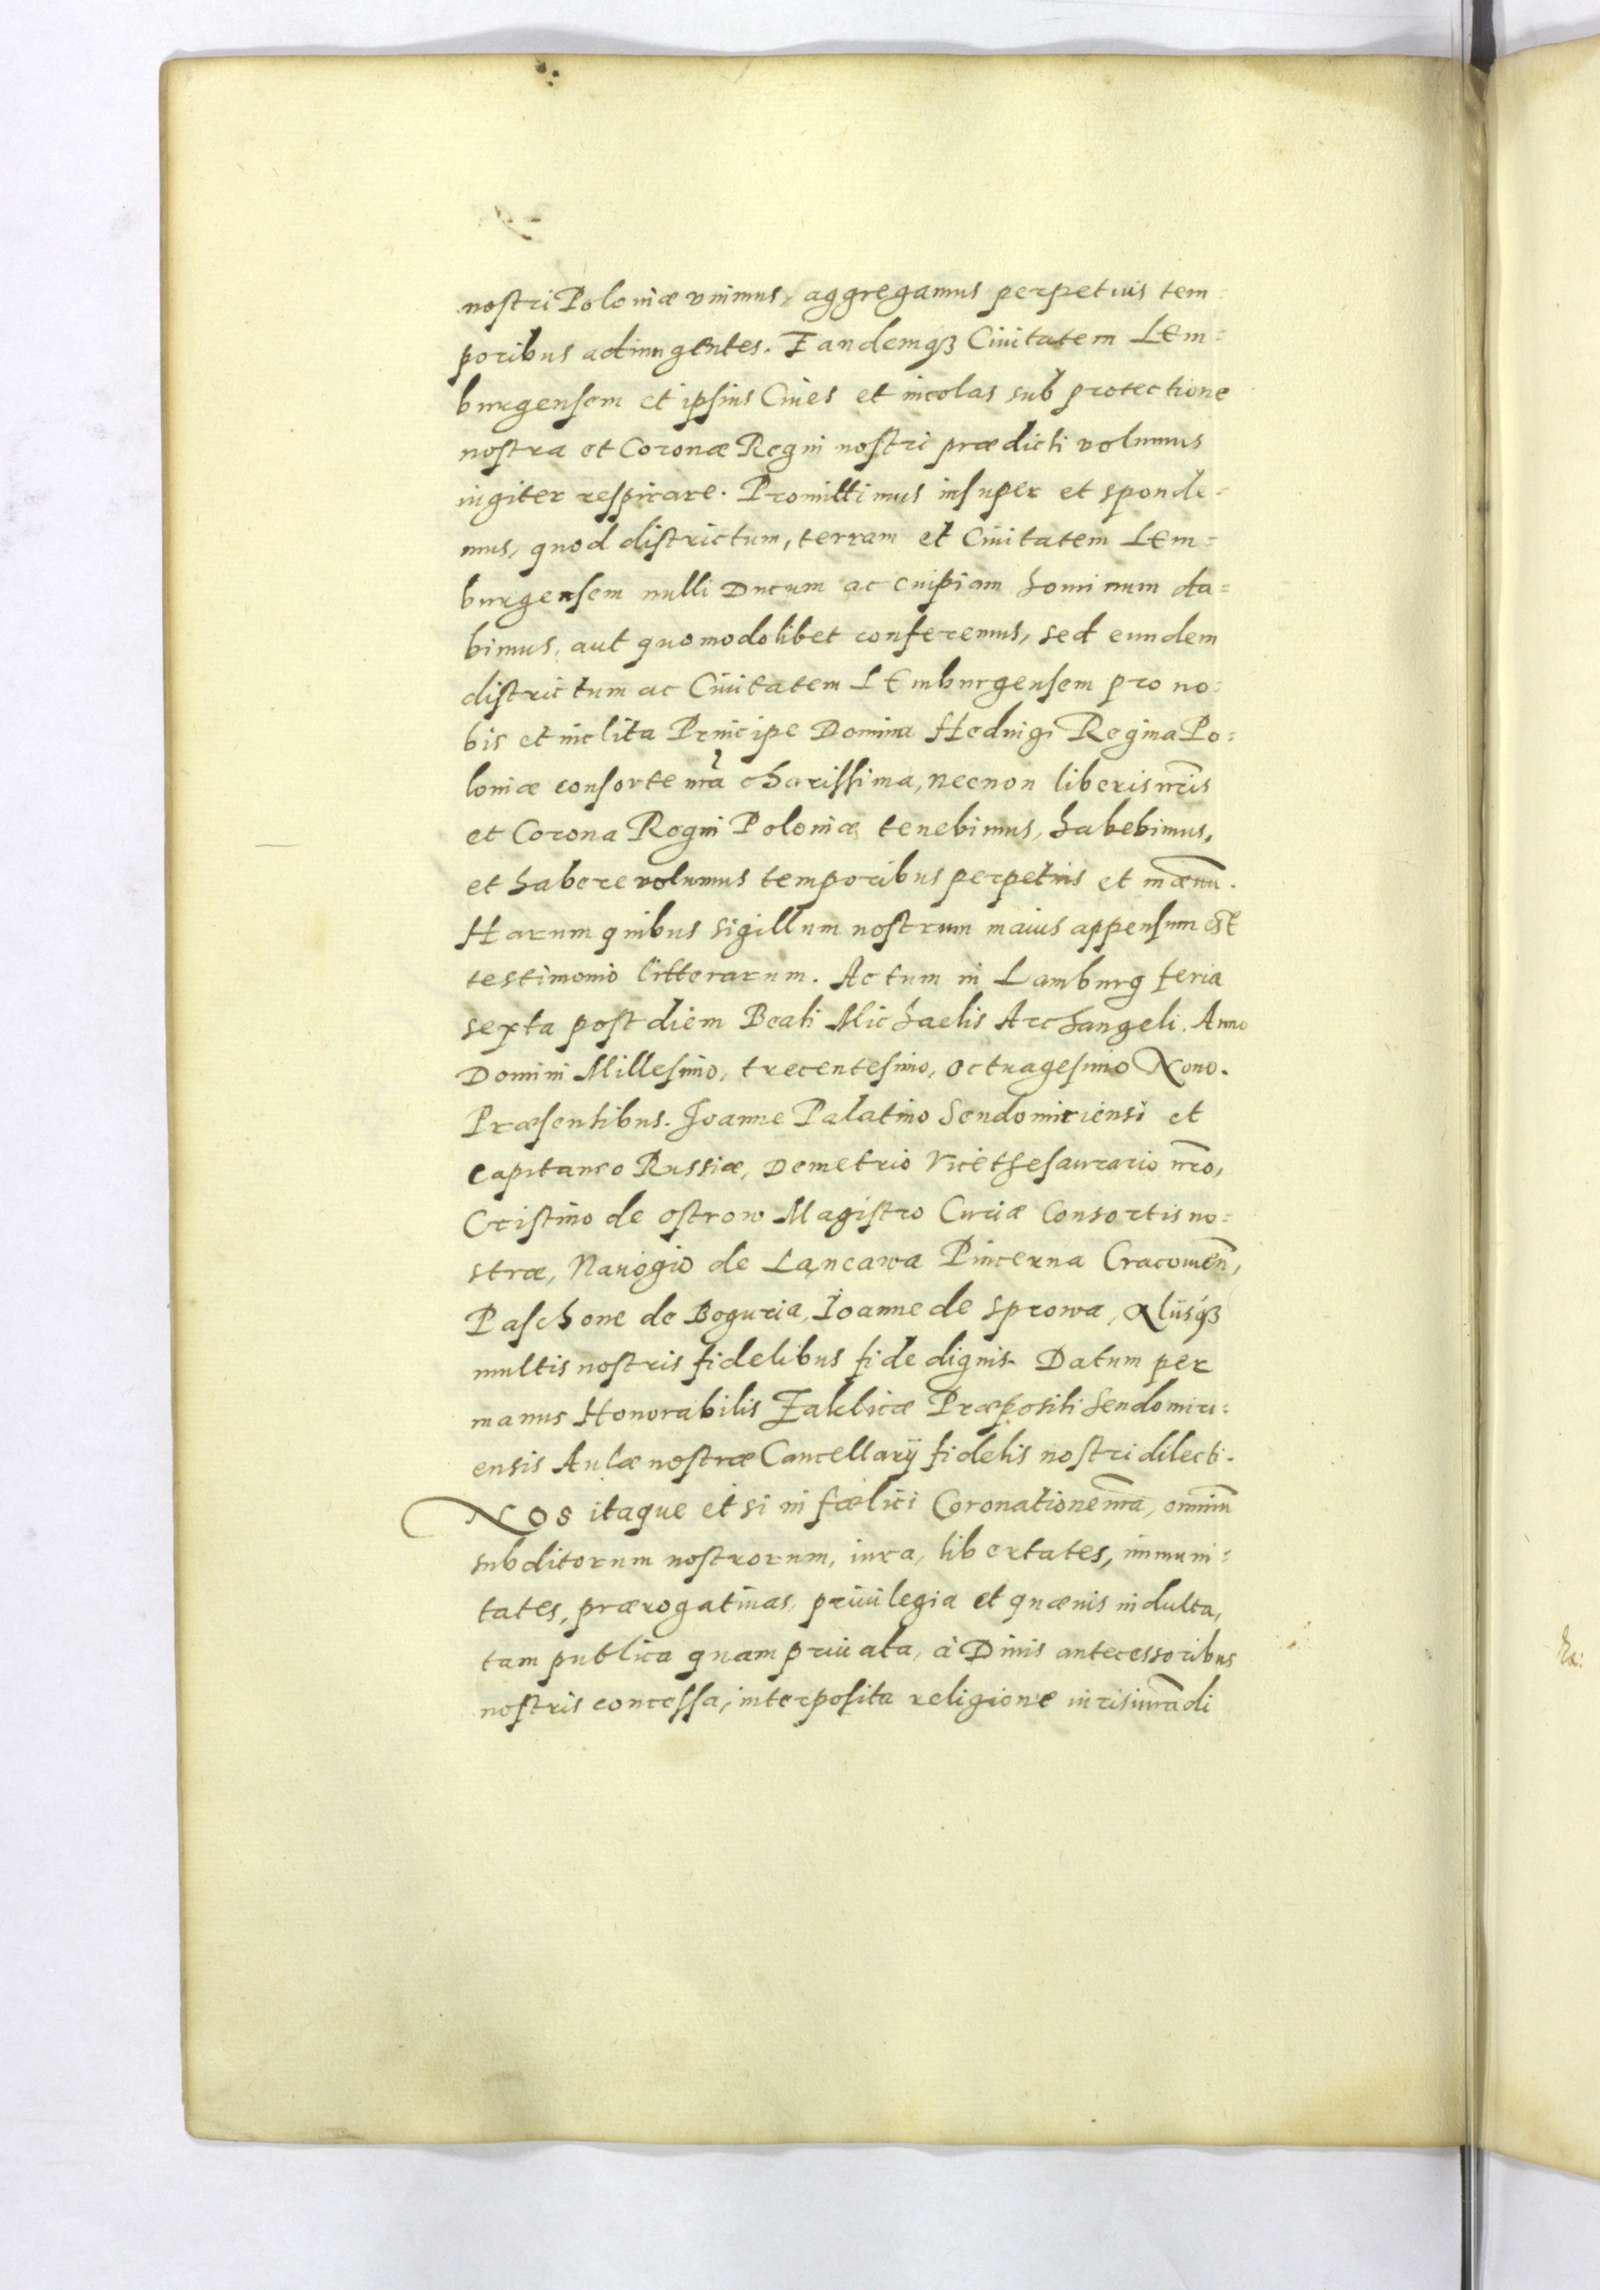 nostri Poloniæ vnimus, aggregamus perpetuis tem=
poribus adiungentes. Eandemqꝫ Ciuitatem LEm=
burgensem et ipsius Ciues et incolas sub protectione
nostra et Coronæ Regni nostri prædicti volumus
iugiter respirare. Promittimus insuper et sponde=
mus, quod districtum, terram et Ciuitatem LEm=
burgensem nulli Ducum ac cuipiam hominum da=
bimus, aut quomodolibet conferemus, sed eundem
districtum ac Ciuitatem LEmburgensem pro no=
bis et inclita Principe Domina Heduigi Regina Po=
loniæ consorte nr̃a charissima, necnon liberis nr̃is
et Corona Regni Poloniæ tenebimus, habebimus,
et habere volumus temporibus perpetuis et in æuũ.
Harum quibus sigillum nostrum maius appensum est
testimonio litterarum. Actum in Lamburg feria
sexta post diem Beati Michaelis Archangeli. Anno
Domini Millesimo, trecentesimo, octuagesimo Nono.
Præsentibus. Joanne Palatino Sendomiriensi et
Capitaneo Russiæ, Demetrio Vicethesaurario nr̃o,
Cristino de ostrow Magistro Curiæ Consortis no=
stræ, Nauogio de Lancawa Pincerna Cracouien̄,
Paschone de Boguria, Joanne de Sprowa, Alijsqꝫ
multis nostris fidelibus fide dignis. Datum per
manus Honorabilis Zaklicæ Præpositi Sendomiri=
ensis Aulæ nostræ Cancellarij fidelis nostri dilecti.
NOS itaque etsi in fœlici Coronatione nr̃a, omniũ
subditorum nostrorum, iura, libertates, immuni=
tates, prærogatiuas, priuilegia et quæuis indulta,
tam publica quam priuata, à Diuis antecessoribus
nostris concessa, interposita religione iurisiurãdi